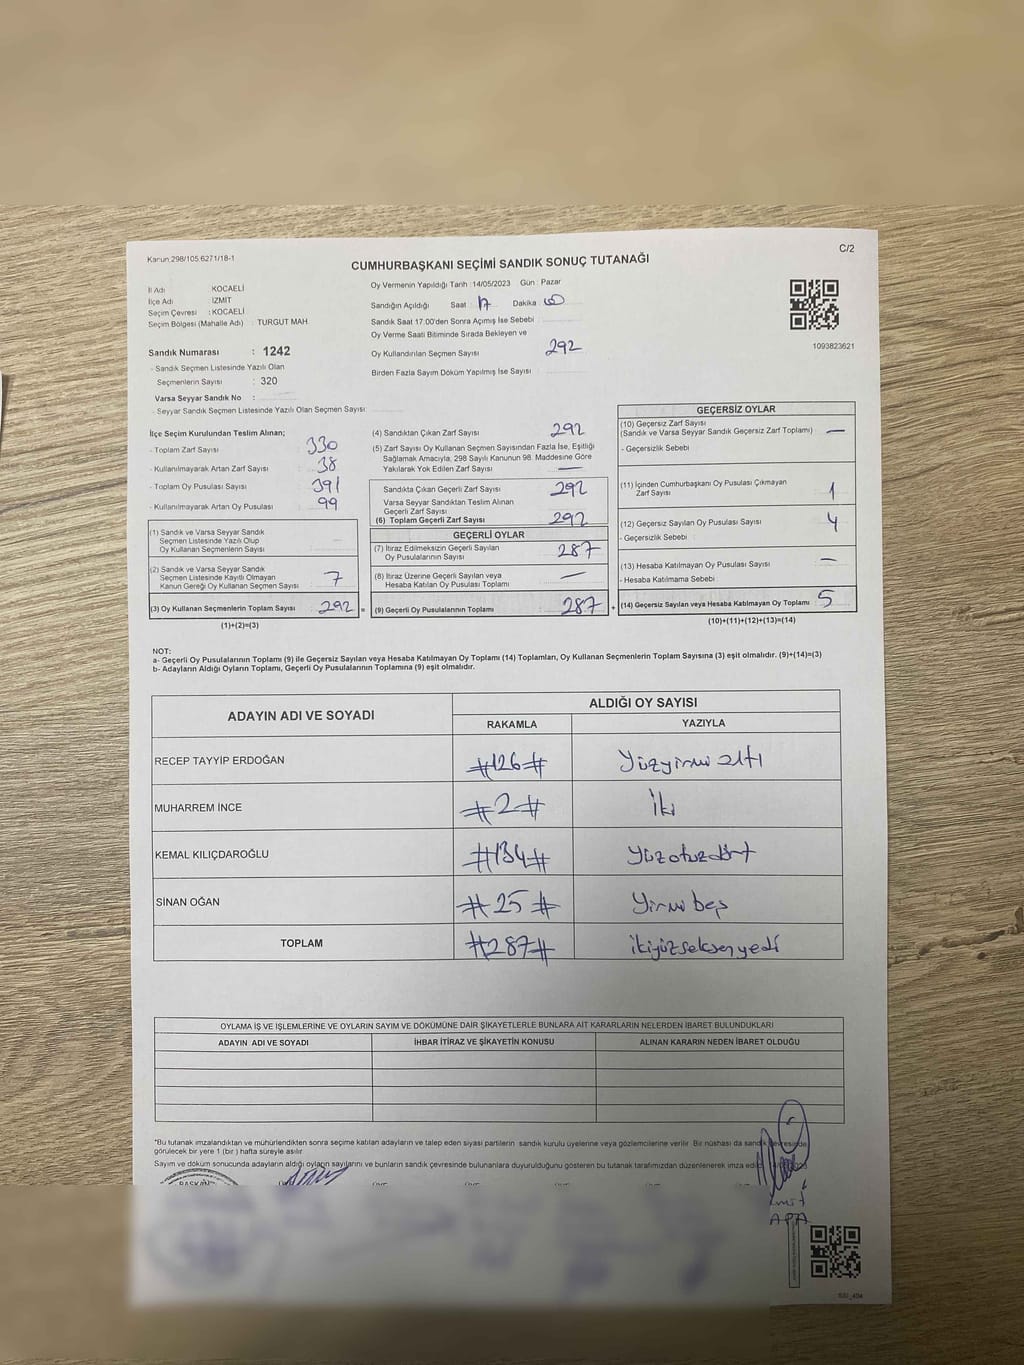 Kanun 298/105.6271/18-1
C/2
CUMHURBAŞKANI SEÇİMİ SANDIK SONUÇ TUTANAĞI
İl Adı KOCAELİ
İlçe Adı İZMİT
Seçim Çevresi : KOCAELİ
Seçim Bölgesi (Mahalle Adı) : TURGUT MAH.
Sandık Numarası : 1242
- Sandık Seçmen Listesinde Yazılı Olan
Seçmenlerin Sayısı : 320
Varsa Seyyar Sandık No :
- Seyyar Sandık Seçmen Listesinde Yazılı Olan Seçmen Sayısı
Oy Vermenin Yapıldığı Tarih : 14/05/2023 Gün : Pazar
Sandığın Açıldığı Saat 17 Dakika 00
Sandık Saat 17.00'den Sonra Açımış İse Sebebi
Oy Verme Saati Bitiminde Sırada Bekleyen ve
Oy Kullandırılan Seçmen Sayısı 292
Birden Fazla Sayım Döküm Yapılmış İse Sayısı
1093823621
İlçe Seçim Kurulundan Teslim Alınan;
- Toplam Zarf Sayısı : 330
- Kullanılmayarak Artan Zarf Sayısı : 38
- Toplam Oy Pusulası Sayısı : 391
- Kullanılmayarak Artan Oy Pusulası : 99
(1) Sandık ve Varsa Seyyar Sandık
Seçmen Listesinde Yazılı Olup
Oy Kullanan Seçmenlerin Sayısı
(2) Sandık ve Varsa Seyyar Sandık
Seçmen Listesinde Kayıtlı Olmayan
Kanun Gereği Oy Kullanan Seçmen Sayısı 7
(3) Oy Kullanan Seçmenlerin Toplam Sayısı 292 =
(1)+(2)=(3)
(4) Sandıktan Çıkan Zarf Sayısı 292
(5) Zarf Sayısı Oy Kullanan Seçmen Sayısından Fazla İse, Eşitliği
Sağlamak Amacıyla, 298 Sayılı Kanunun 98. Maddesine Göre
Yakılarak Yok Edilen Zarf Sayısı —
Sandıkta Çıkan Geçerli Zarf Sayısı 292
Varsa Seyyar Sandıktan Teslim Alınan
Geçerli Zarf Sayısı
(6) Toplam Geçerli Zarf Sayısı 292
GEÇERLİ OYLAR
(7) İtiraz Edilmeksizin Geçerli Sayılan
Oy Pusulalarının Sayısı 287
(8) İtiraz Üzerine Geçerli Sayılan veya
Hesaba Katılan Oy Pusulası Toplamı —
(9) Geçerli Oy Pusulalarının Toplamı 287 +
GEÇERSİZ OYLAR
(10) Geçersiz Zarf Sayısı
(Sandık ve Varsa Seyyar Sandık Geçersiz Zarf Toplamı) —
- Geçersizlik Sebebi
(11) İçinden Cumhurbaşkanı Oy Pusulası Çıkmayan
Zarf Sayısı 1
(12) Geçersiz Sayılan Oy Pusulası Sayısı 4
- Geçersizlik Sebebi :
(13) Hesaba Katılmayan Oy Pusulası Sayısı —
- Hesaba Katılmama Sebebi
(14) Geçersiz Sayılan veya Hesaba Katılmayan Oy Toplamı 5
(10)+(11)+(12)+(13)=(14)
NOT:
a- Geçerli Oy Pusulalarının Toplamı (9) ile Geçersiz Sayılan veya Hesaba Katılmayan Oy Toplamı (14) Toplamları, Oy Kullanan Seçmenlerin Toplam Sayısına (3) eşit olmalıdır. (9)+(14)=(3)
b- Adayların Aldığı Oyların Toplamı, Geçerli Oy Pusulalarının Toplamına (9) eşit olmalıdır.
ADAYIN ADI VE SOYADI
ALDIĞI OY SAYISI
RAKAMLA YAZIYLA
RECEP TAYYİP ERDOĞAN #126# Yüzyirmi altı
MUHARREM İNCE #2# iki
KEMAL KILIÇDAROĞLU #134# Yüzotuzdört
SİNAN OĞAN #25# Yirmi beş
TOPLAM #287# ikiyüzseksenyedi
OYLAMA İŞ VE İŞLEMLERİNE VE OYLARIN SAYIM VE DÖKÜMÜNE DAİR ŞİKAYETLERLE BUNLARA AİT KARARLARIN NELERDEN İBARET BULUNDUKLARI
ADAYIN ADI VE SOYADI İHBAR İTİRAZ VE ŞİKAYETİN KONUSU ALINAN KARARIN NEDEN İBARET OLDUĞU
*Bu tutanak imzalandıktan ve mühürlendikten sonra seçime katılan adayların ve talep eden siyasi partilerin sandık kurulu üyelerine veya gözlemcilerine verilir. Bir nüshası da sandık çevresinde
görülecek bir yere 1 (bir) hafta süreyle asılır
Sayım ve döküm sonucunda adayların aldığı oyların sayılarını ve bunların sandık çevresinde bulunanlara duyurulduğunu gösteren bu tutanak tarafımızdan düzenlenerek imza
BAŞKAN